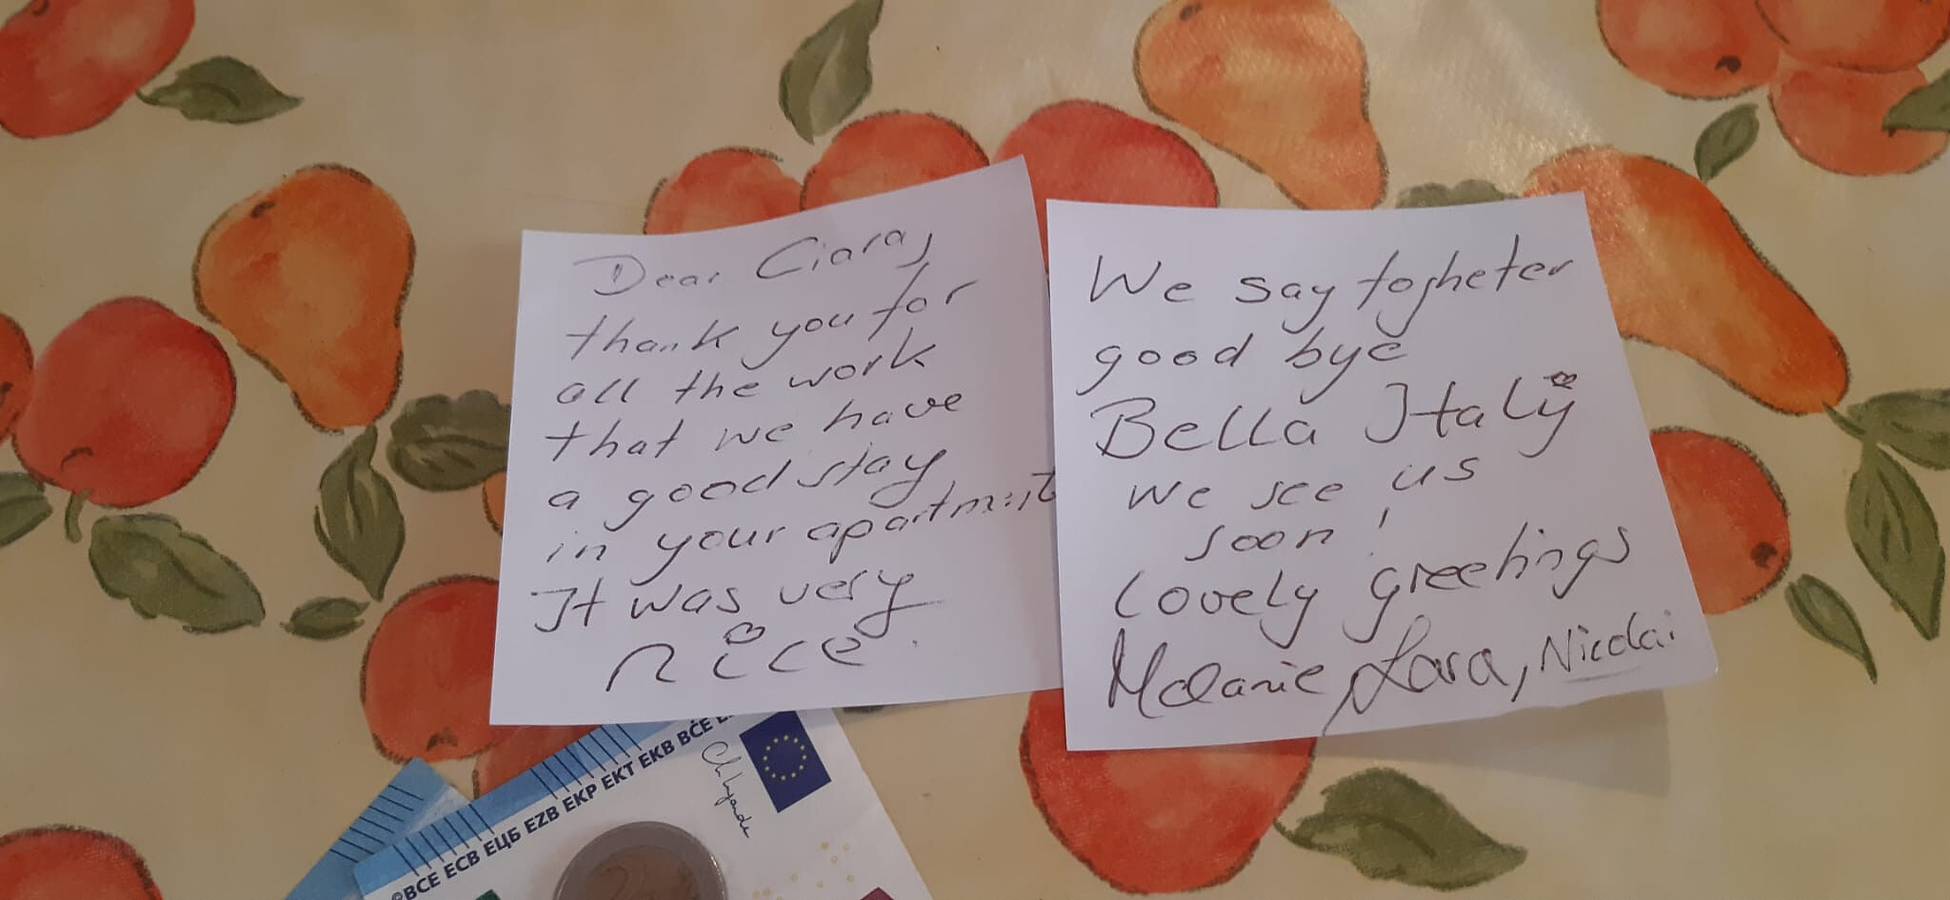 Dear Ciara,
thank you for
all the work
that we have
a good stay
in your apartment
It was very
nice.
We say togheter
good bye
Bella Italy
we see us
soon!
Lovely greetings
Melanie, Lara, Nicolai
©BCE ECB ЕЦБ EZB EKP EKT EKB BĊE